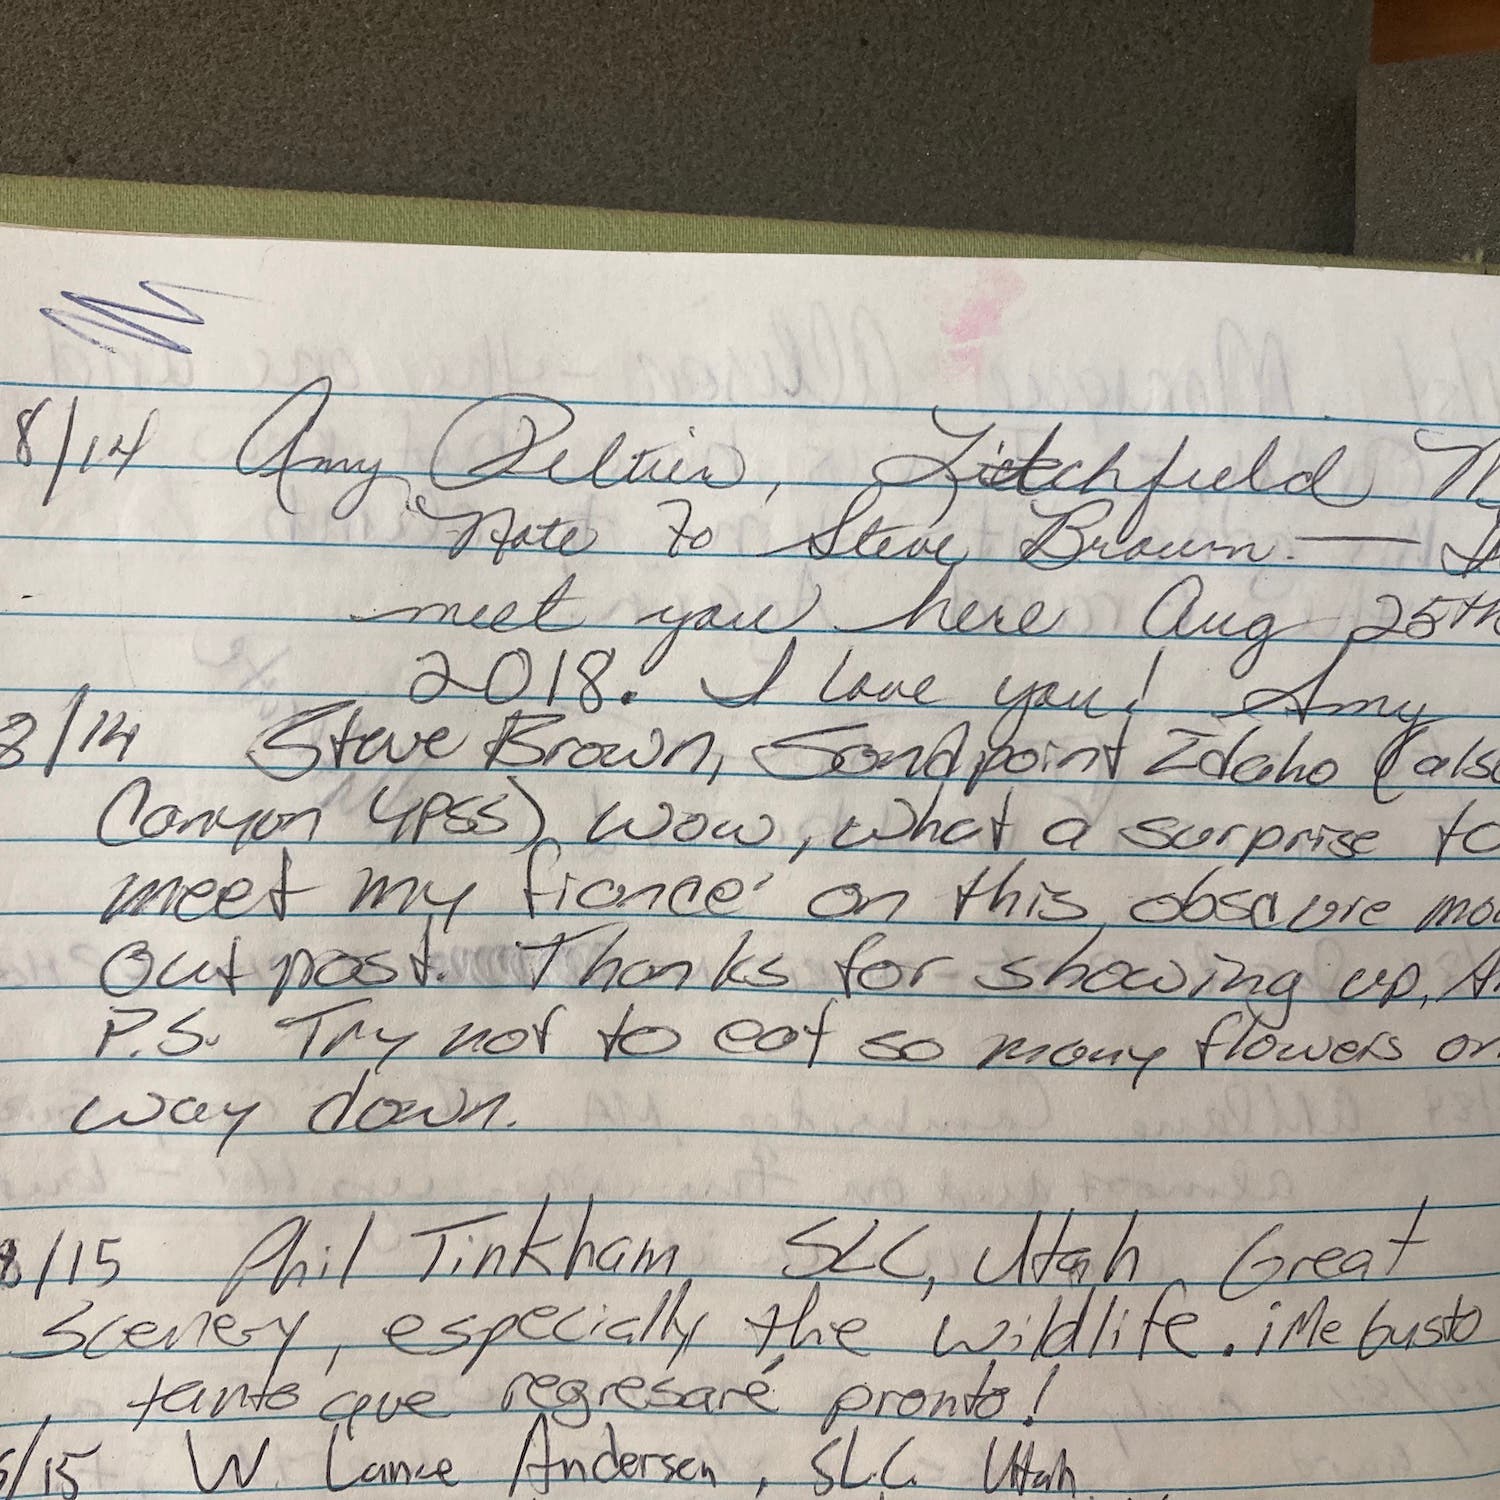 8/14 Amy Peltier, Litchfield
Note to Steve Brown. —
meet you here Aug 25th
2018. I love you! Amy
8/14 Steve Brown, Sandpoint Idaho (also
Canyon YPSS) Wow, what a surprise to
meet my fiancé on this obscure
outpost. Thanks for showing up,
P.S. Try not to eat so many flowers on
way down.
8/15 Phil Tinkham, SLC, Utah. Great
Scenery, especially the wildlife. ¡Me gustó
tanto que regresaré pronto!
8/15 W. Lance Andersen, SLC Utah